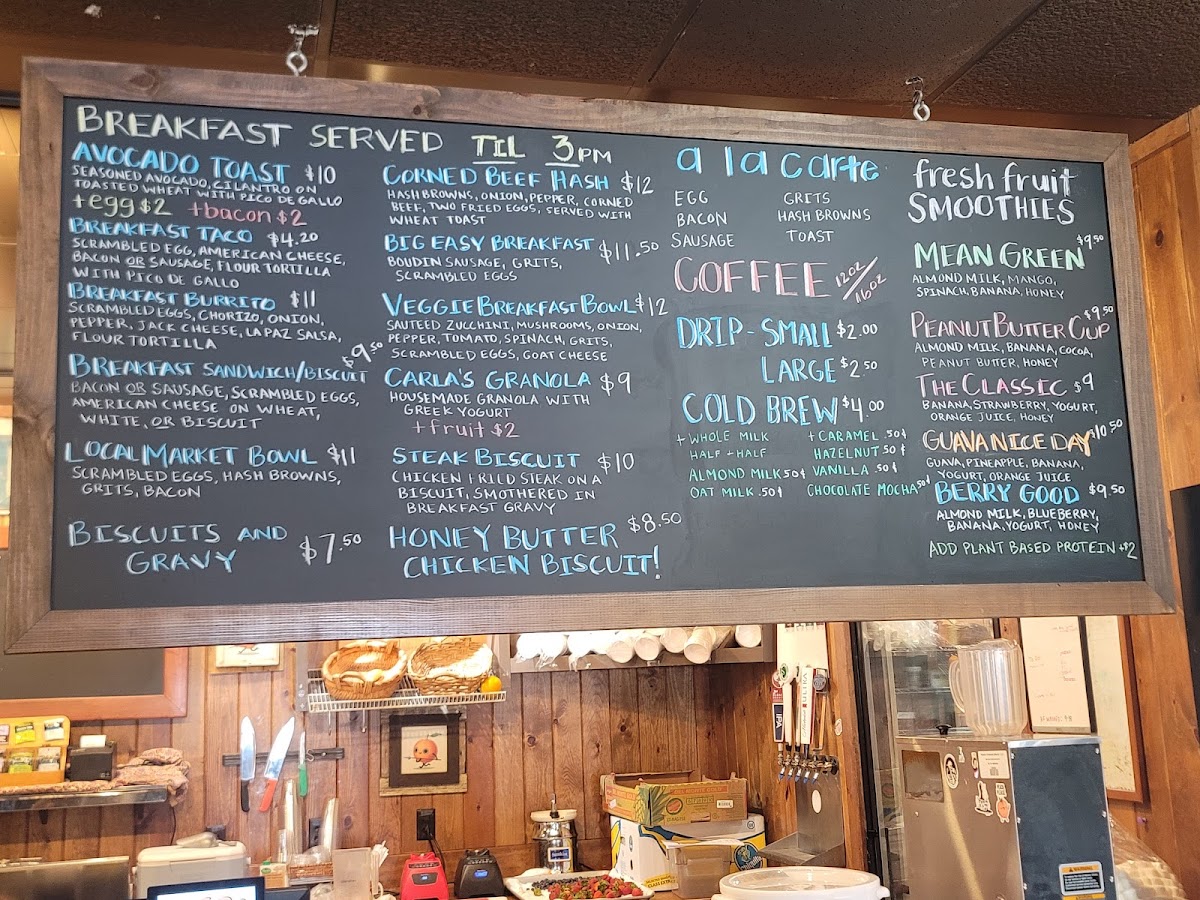 BREAKFAST SERVED TIL 3PM
AVOCADO TOAST $10
SEASONED AVOCADO, CILANTRO ON
TOASTED WHEAT WITH PICO DE GALLO
+egg $2 +bacon $2
BREAKFAST TACO $4.20
SCRAMBLED EGG, AMERICAN CHEESE,
BACON OR SAUSAGE, FLOUR TORTILLA
WITH PICO DE GALLO
BREAKFAST BURRITO $11
SCRAMBLED EGGS, CHORIZO, ONION,
PEPPER, JACK CHEESE, LA PAZ SALSA,
FLOUR TORTILLA
BREAKFAST SANDWICH/BISCUIT $9.50
BACON OR SAUSAGE, SCRAMBLED EGGS,
AMERICAN CHEESE ON WHEAT,
WHITE, OR BISCUIT
LOCAL MARKET BOWL $11
SCRAMBLED EGGS, HASH BROWNS,
GRITS, BACON
BISCUITS AND
GRAVY $7.50
CORNED BEEF HASH $12
HASHBROWNS, ONION, PEPPER, CORNED
BEEF, TWO FRIED EGGS, SERVED WITH
WHEAT TOAST
BIG EASY BREAKFAST $11.50
BOUDIN SAUSAGE, GRITS,
SCRAMBLED EGGS
VEGGIE BREAKFAST BOWL $12
SAUTEED ZUCCHINI, MUSHROOMS, ONION,
PEPPER, TOMATO, SPINACH, GRITS,
SCRAMBLED EGGS, GOAT CHEESE
CARLA'S GRANOLA $9
HOUSEMADE GRANOLA WITH
GREEK YOGURT
+fruit $2
STEAK BISCUIT $10
CHICKEN FRIED STEAK ON A
BISCUIT, SMOTHERED IN
BREAKFAST GRAVY
HONEY BUTTER $8.50
CHICKEN BISCUIT!
a la carte
EGG GRITS
BACON HASH BROWNS
SAUSAGE TOAST
COFFEE 12oz/16oz
DRIP - SMALL $2.00
LARGE $2.50
COLD BREW $4.00
+ WHOLE MILK + CARAMEL .50¢
HALF + HALF HAZELNUT .50¢
ALMOND MILK .50¢ VANILLA .50¢
OAT MILK .50¢ CHOCOLATE MOCHA .50¢
fresh fruit
SMOOTHIES
MEAN GREEN $9.50
ALMOND MILK, MANGO,
SPINACH, BANANA, HONEY
PEANUT BUTTER CUP $9.50
ALMOND MILK, BANANA, COCOA,
PEANUT BUTTER, HONEY
THE CLASSIC $9
BANANA, STRAWBERRY, YOGURT,
ORANGE JUICE, HONEY
GUAVA NICE DAY $10.50
GUAVA, PINEAPPLE, BANANA,
YOGURT, ORANGE JUICE
BERRY GOOD $9.50
ALMOND MILK, BLUEBERRY,
BANANA, YOGURT, HONEY
ADD PLANT BASED PROTEIN +$2
ULTRA
IPA